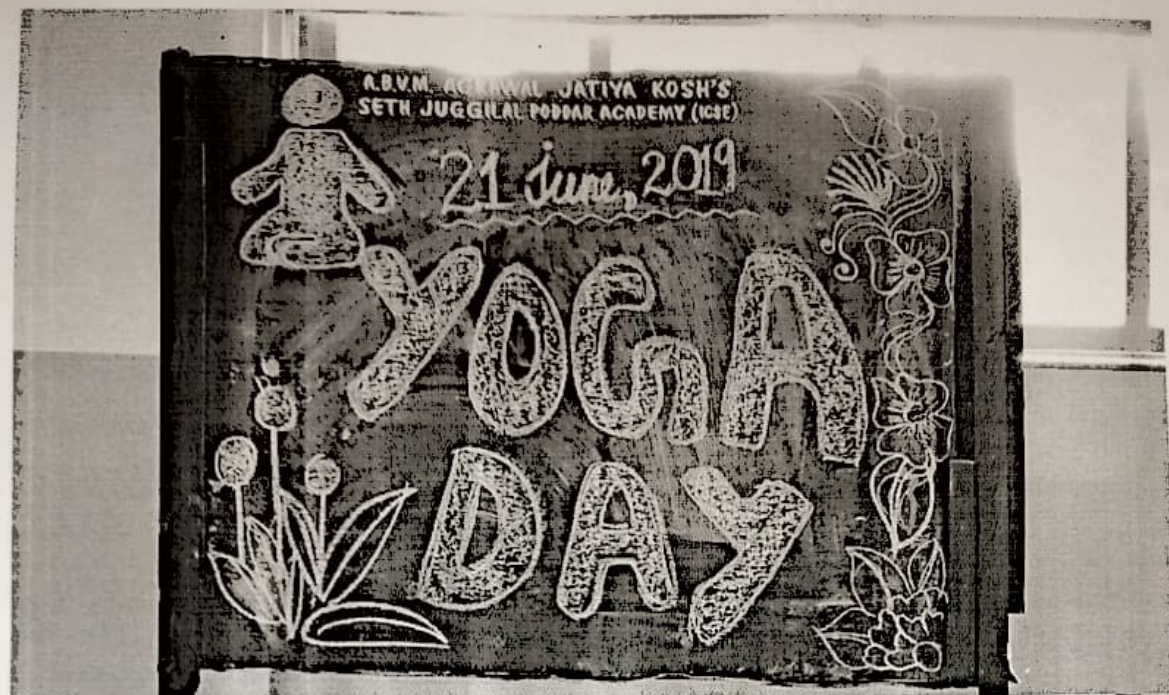 A.B.V.M. AGRAWAL JATIYA KOSH'S
SETH JUGGILAL PODDAR ACADEMY (IGSE)
21 June, 2019
YOGA
DAY